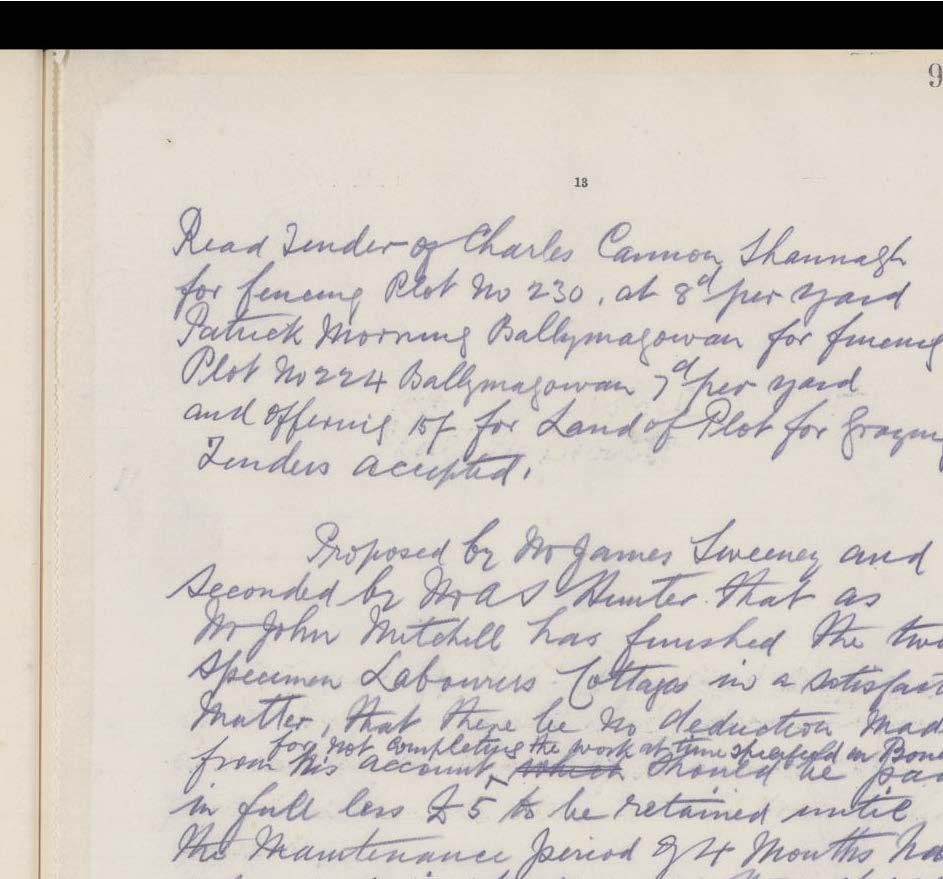 9
13
Read Tender of Charles Cannon, Shannagh
for fencing Plot No 230, at 8d per yard
Patrick Morning Ballymagowan for fencing
Plot No 224 Ballymagowan 7d per yard
and offering 15/ for Land of Plot for Grazing
Tenders accepted.
Proposed by Mr James Sweeney and
Seconded by Mr A S Hunter that as
Mr John Mitchell has finished the two
Specimen Labourers Cottages in a satisfact
Matter, that there be no deduction Mad
for not completing the work at time specified in Bond
from his account which should be pa
in full less £5 to be retained until
the Maintenance period of 4 Months ha